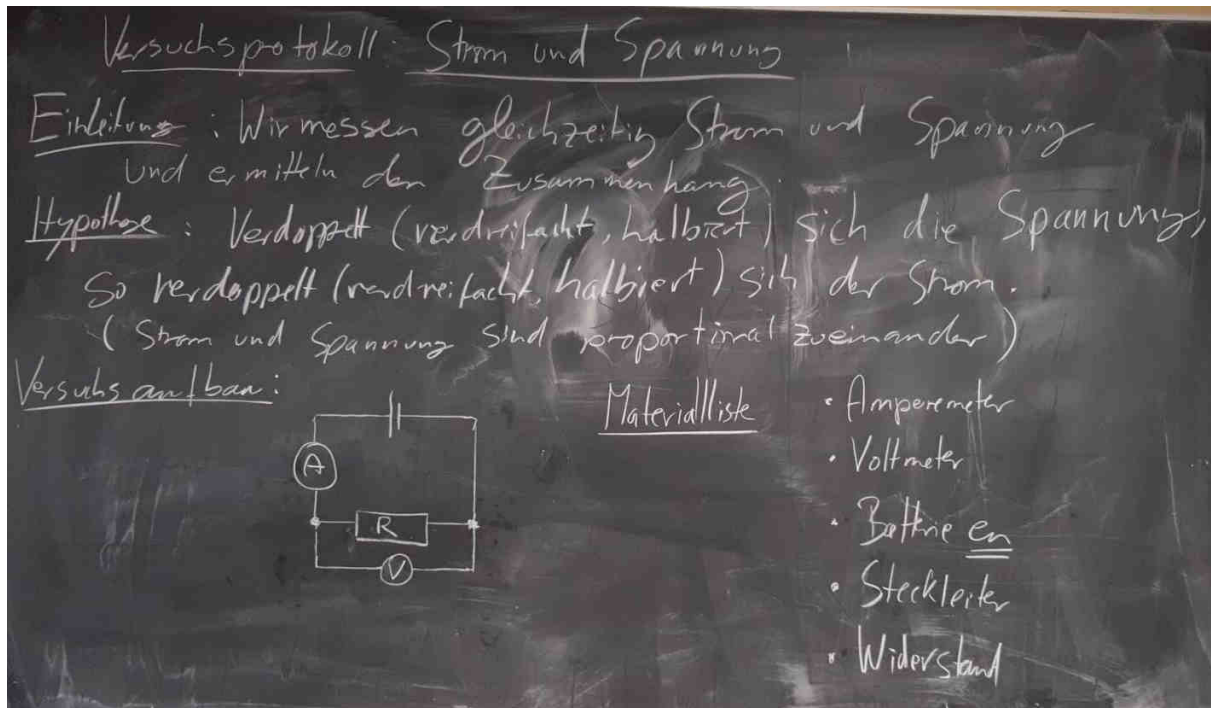 Versuchsprotokoll: Strom und Spannung
Einleitung: Wir messen gleichzeitig Strom und Spannung
und ermitteln den Zusammenhang.
Hypothese: Verdoppelt (verdreifacht, halbiert) sich die Spannung,
So verdoppelt (verdreifacht, halbiert) sich der Strom.
(Strom und Spannung sind proportional zueinander)
Versuchsaufbau:
A
R
V
Materialliste
• Amperemeter
• Voltmeter
• Batterien
• Steckleiter
• Widerstand